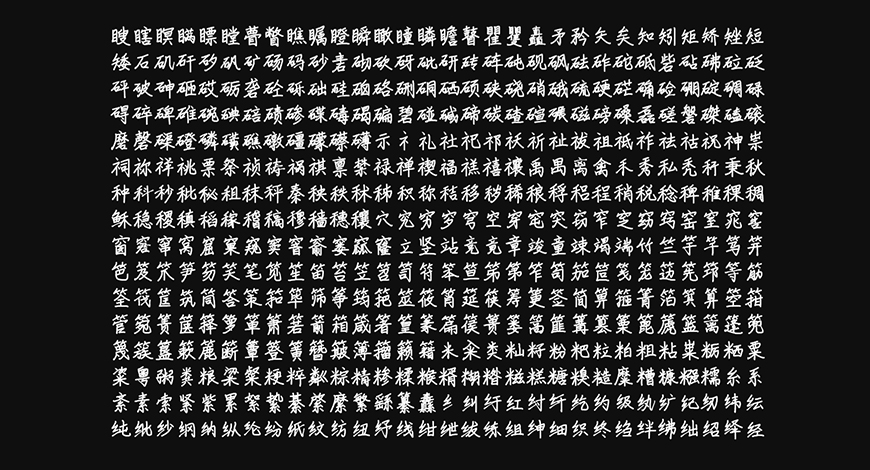 瞍瞎瞑瞒瞟瞠瞢瞥瞧瞩瞪瞬瞰瞳瞵瞻瞽瞿矍矗矛矜矢矣知矧矩矫矬短
矮石矶矸矽矾矿砀码砂砉砌砍砑砒研砖砗砘砚砜砝砟砣砥砦砧砩砬砭
砰破砷砸砹砺砻砼砾础硅硇硌硎硐硒硕硖硗硝硪硫硬硭确硷硼碇碉碌
碍碎碑碓碗碘碚碛碜碟碡碣碥碧碰碱碲碳碴碹碾磁磅磉磊磋磐磔磕磙
磨磬磲磴磷磺礁礅礓礞礤礴示礻礼社祀祁祆祈祉祓祖祗祚祛祜祝神祟
祠祢祥祧票祭祯祷祸祺禀禁禄禅禊福禚禧禳禹禺离禽禾秀私秃秆秉秋
种科秒秕秘租秣秤秦秧秩秫秭积称秸移秽稀稂稃稆程稍税稔稗稚稞稠
稣稳稷稹稻稼稽稿穆穑穗穰穴究穷穸穹空穿窀突窃窄窆窈窍窑窒窕窖
窗窘窜窝窟窠窥窦窨窬窭窳窿立竖站竞竟章竣童竦竭端竹竺竽竿笃笄
笆笈笊笋笏笑笔笕笙笛笞笠笤笥符笨笪笫第笮笱笳笸笺笼笾筅筇等筋
筌筏筐筑筒答策筘筚筛筝筠筢筮筱筲筵筷筹筻签简箅箍箐箔箕算箜箝
管箢箦箧箨箩箪箫箬箭箱箴箸篁篆篇篌篑篓篙篚篝篡篥篦篪篮篱篷篼
篾簇簋簌簏簖簟簦簧簪簸簿籀籁籍米籴类籼籽粉粑粒粕粗粘粜粝粞粟
粢粤粥粪粮粱粲粳粹粼粽精糁糅糇糈糊糌糍糕糖糗糙糜糟糠糨糯糸系
紊素索紧紫累絮絷綦綮縻繁繇纂纛纟纠纡红纣纤纥约级纨纩纪纫纬纭
纯纰纱纲纳纵纶纷纸纹纺纽纾线绀绁绂练组绅细织终绉绊绋绌绍绎经